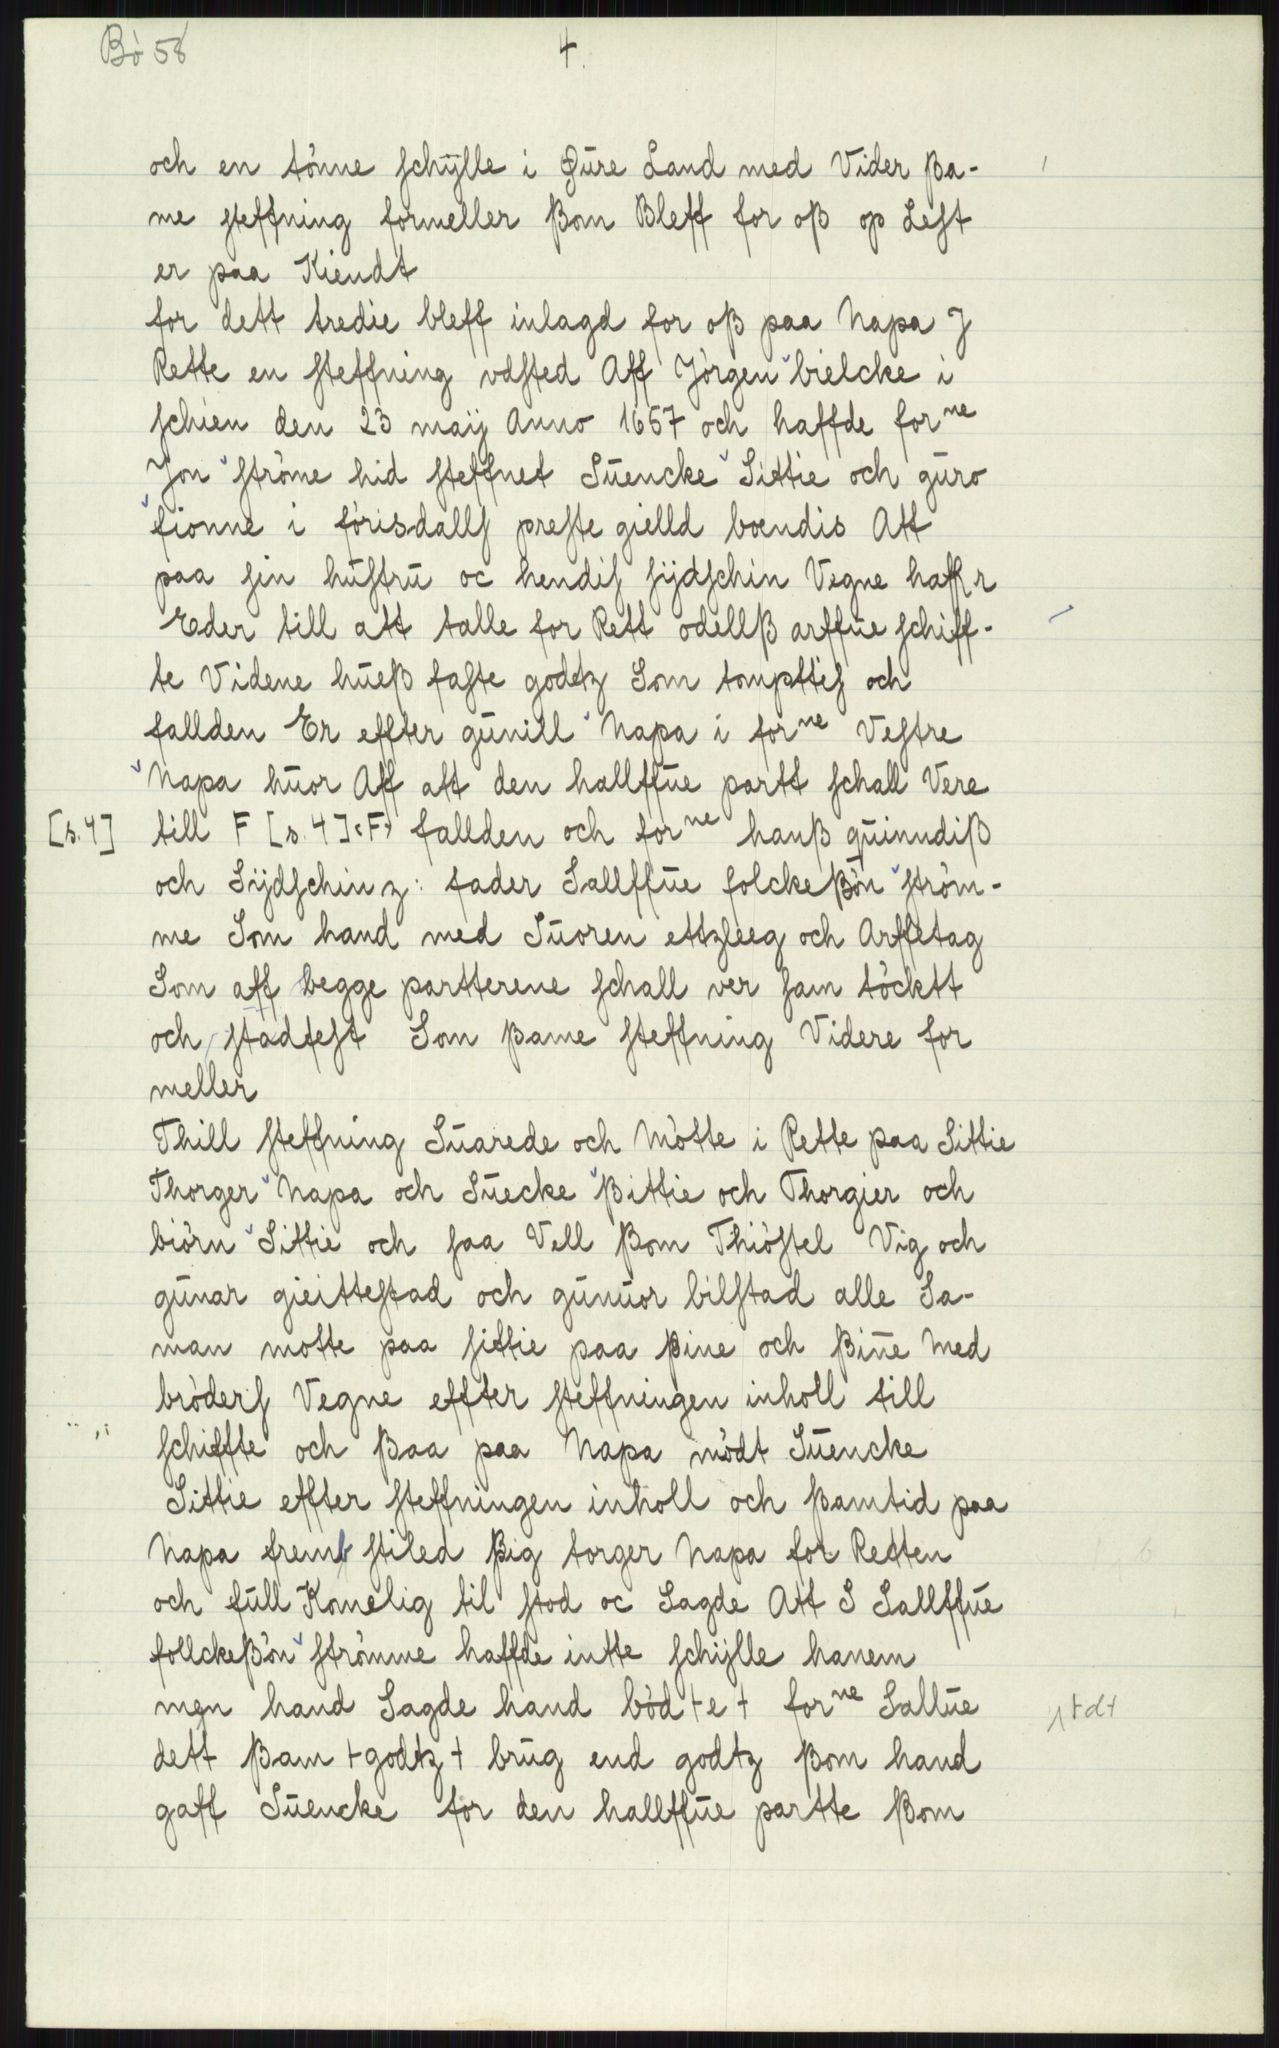 Bö 58
4.
och en tönne schÿlle i øure Land med Vider ßa-
me steffning formeller ßom Bleff for oß op Lest
er paa Kiendt
for dett tredie bleff inlagd for oß paa Napa J
Rette en steffning vdsted Aff Jörgen bielcke i
schien den 23 maij Anno 1657 och haffde forne
Jon ströme hid steffnet Suencke Sittie och guro
fionne i förisdalls preste gielld boendis Att
paa sin hustru oc hendis sÿdschin Vegne haffr
Eder till att talle for Rett odellß arffue schiff-
te Videne hueß faste godetz Som tompttis och
fallden Er effter gunill Napa i forne Vestre
Napa huor Aff att den hallffue partt schall Vere
[s. 4] till F [s. 4] <F> fallden och forne hanß quinndiß
och Sÿdschinz: fader Sallffue folckeßön ström-
me Som hand med Suoren ettzleeg och Arffetag
Som aff begge partterene schall ver sam töcktt
och stadfest Som ßame steffning Videre for
meller
Thill steffning Suarede och Mötte i Rette paa Sittie
Thorger Napa och Suecke ßittie och Thorgier och
biörn Sittie och saa Vell ßom Thiöstel Vig och
gunar gieittestad och gunuor bilstad alle Sa-
man motte paa sittie paa ßine och ßine Med
bröders Vegne effter steffningen inholl till
schiffte och ßaa paa Napa mödt Suencke
Sittie effter steffningen inholl och ßamtid paa
Napa fremb stiled ßig torger Napa for Retten
och full Komelig til stod oc Sagde Att S Sallffue
follckeßön strömme haffde intte schÿlle hanem
men hand Sagde hand böd +e+ forne Sallue +dt
dett ßam +godtz+ brug end godtz ßom hand
gaff Suencke for den hallffue partte ßom